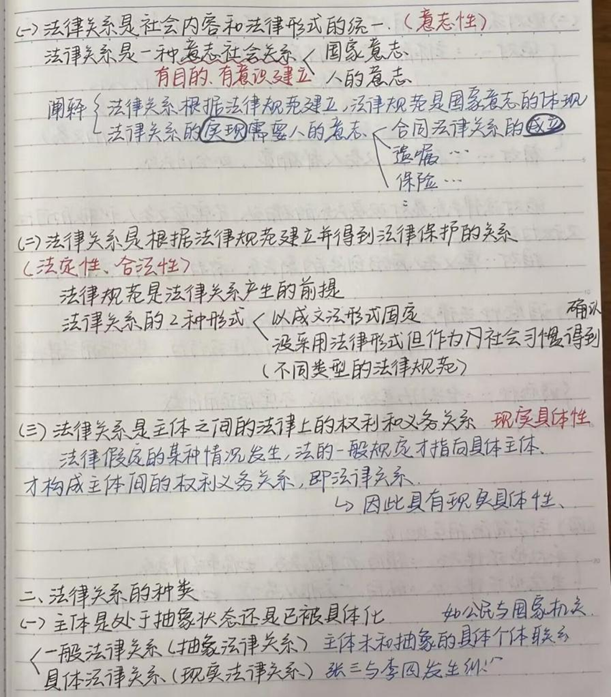 (一)法律关系是社会内容和法律形式的统一.(意志性)
法律关系是一种意志社会关系 国家意志
有目的.有意识建立 人的意志
阐释 法律关系根据法律规范建立,法律规范是国家意志的体现
法律关系的实现需要人的意志 合同法律关系的成立
遗嘱…
保险…
⋮
(二)法律关系是根据法律规范建立并得到法律保护的关系
(法定性、合法性)
法律规范是法律关系产生的前提
法律关系的2种形式 以成文法形式固定 确认
没采用法律形式但作为 社会习惯得到
(不同类型的法律规范)
(三)法律关系是主体之间的法律上的权利和义务关系 现实具体性
法律假设的某种情况发生,法的一般规定才指向具体主体.
才构成主体间的权利义务关系,即法律关系.
↳ 因此具有现实具体性、
二、法律关系的种类
(一)主体是处于抽象状态还是已被具体化 如公民与国家机关
一般法律关系(抽象法律关系) 主体未和抽象的具体个体联系
具体法律关系(现实法律关系) 张三与李四发生纠纷